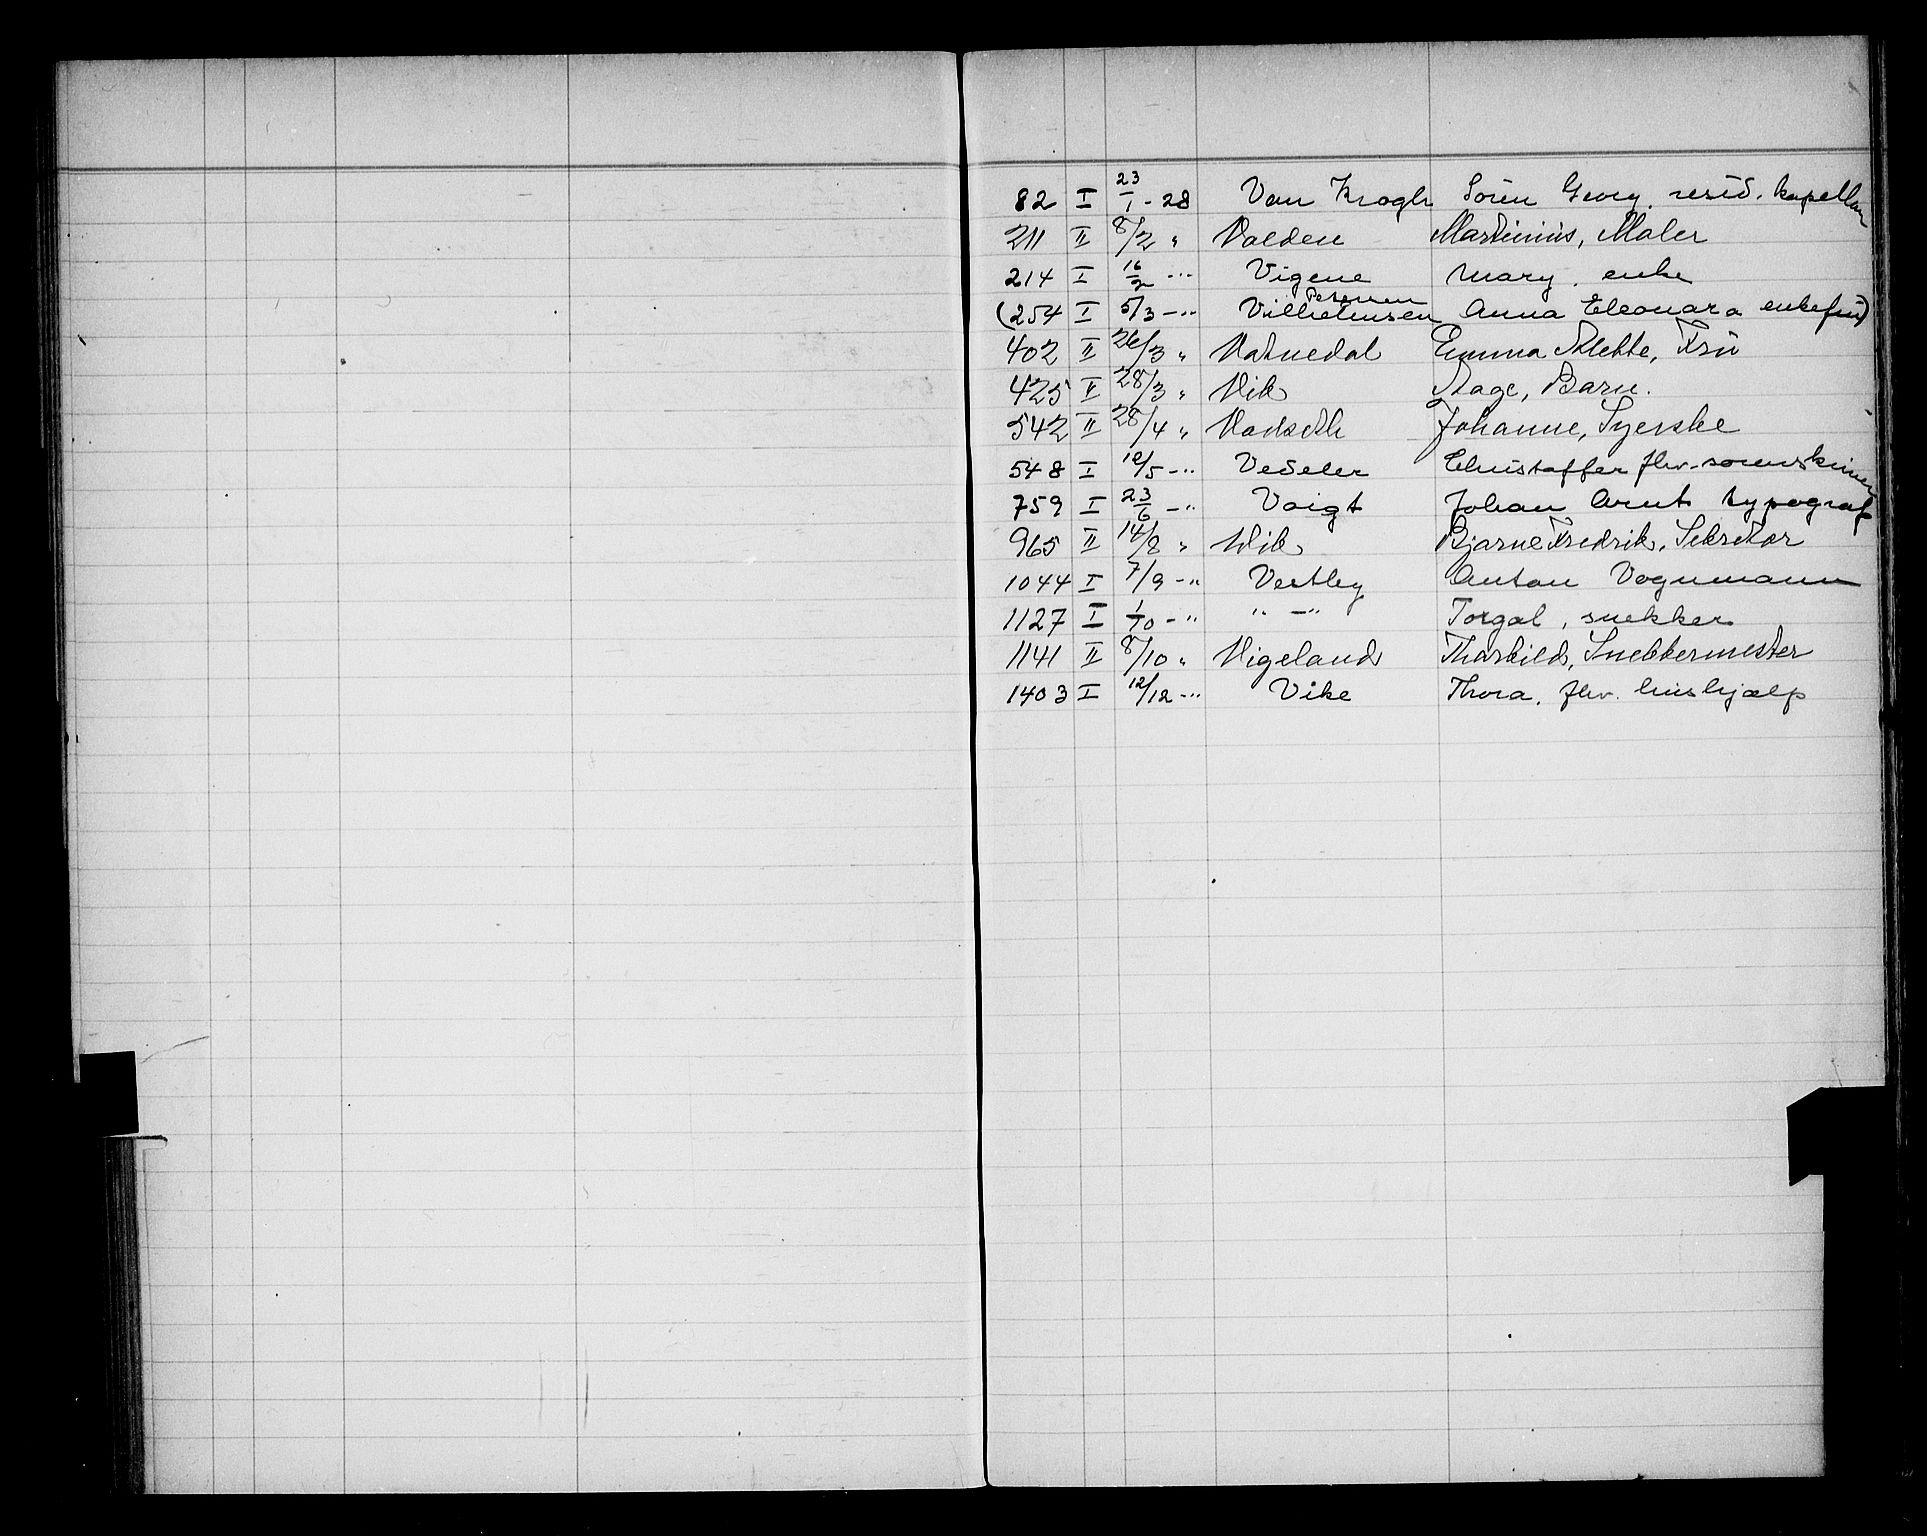 82 I 23/1 - 28 Von Krogh Sören Georg. resid. kapellan
211 II 8/2 " Valden Martinius, Maler
214 I 16/2 -"- Vigene Mary. enke
(254 I 5/3 -"- Vilhelmsen Anna Eleonora enkefru)
402 II 26/3 " Vatnedal Emma Mette, Frü
425 II 28/3 " Vik Aage, Barn.
542 II 28/4 " Vadseth Johanne, Syerske
548 I 10/5 -"- Vedeler Christoffer fhv. sorenskriver
759 I 23/6 -"- Voigt Johan Arnt typograf
965 II 14/8 " Wik Bjarne Fredrik, Sekretær
1044 I 7/9 -"- Vestby Anton Vognmann
1127 I 1/10 -"- " -"- Torgal, snekker
1141 II 8/10 " Vigeland Tharkild, Snekkermester
1403 I 12/12 -"- Vike Thora. fhv. hushjælp